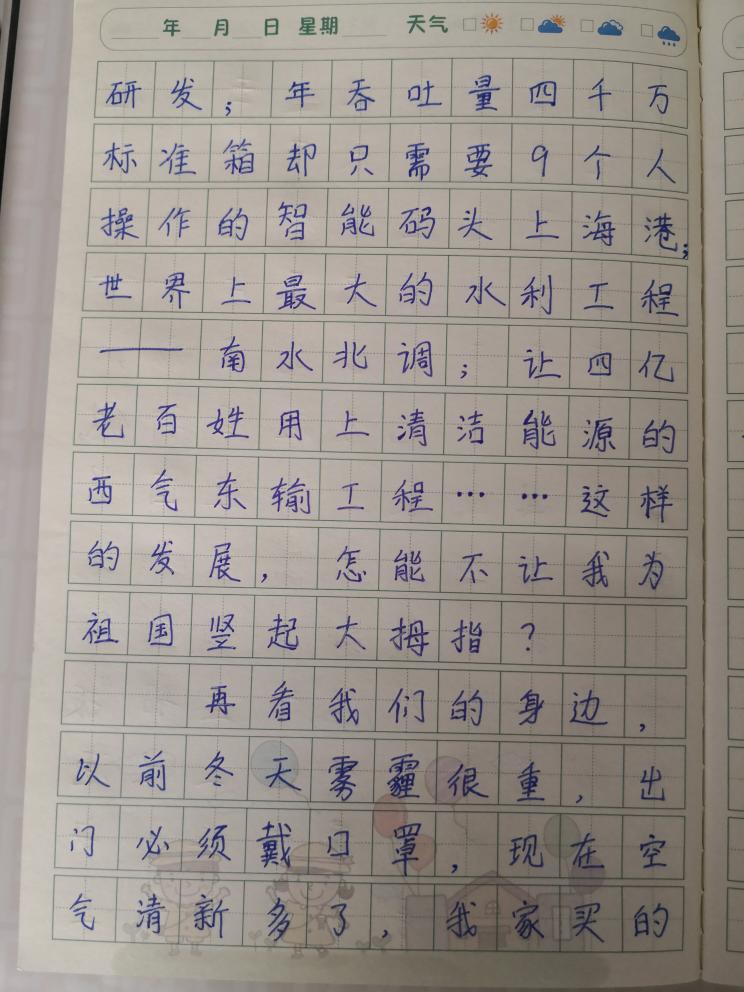 年 月 日 星期 天气
研发；年吞吐量四千万
标准箱却只需要9个人
操作的智能码头上海港；
世界上最大的水利工程
——南水北调；让四亿
老百姓用上清洁能源的
西气东输工程……这样
的发展，怎能不让我为
祖国竖起大拇指？
再看我们的身边，
以前冬天雾霾很重，出
门必须戴口罩，现在空
气清新多了，我家买的